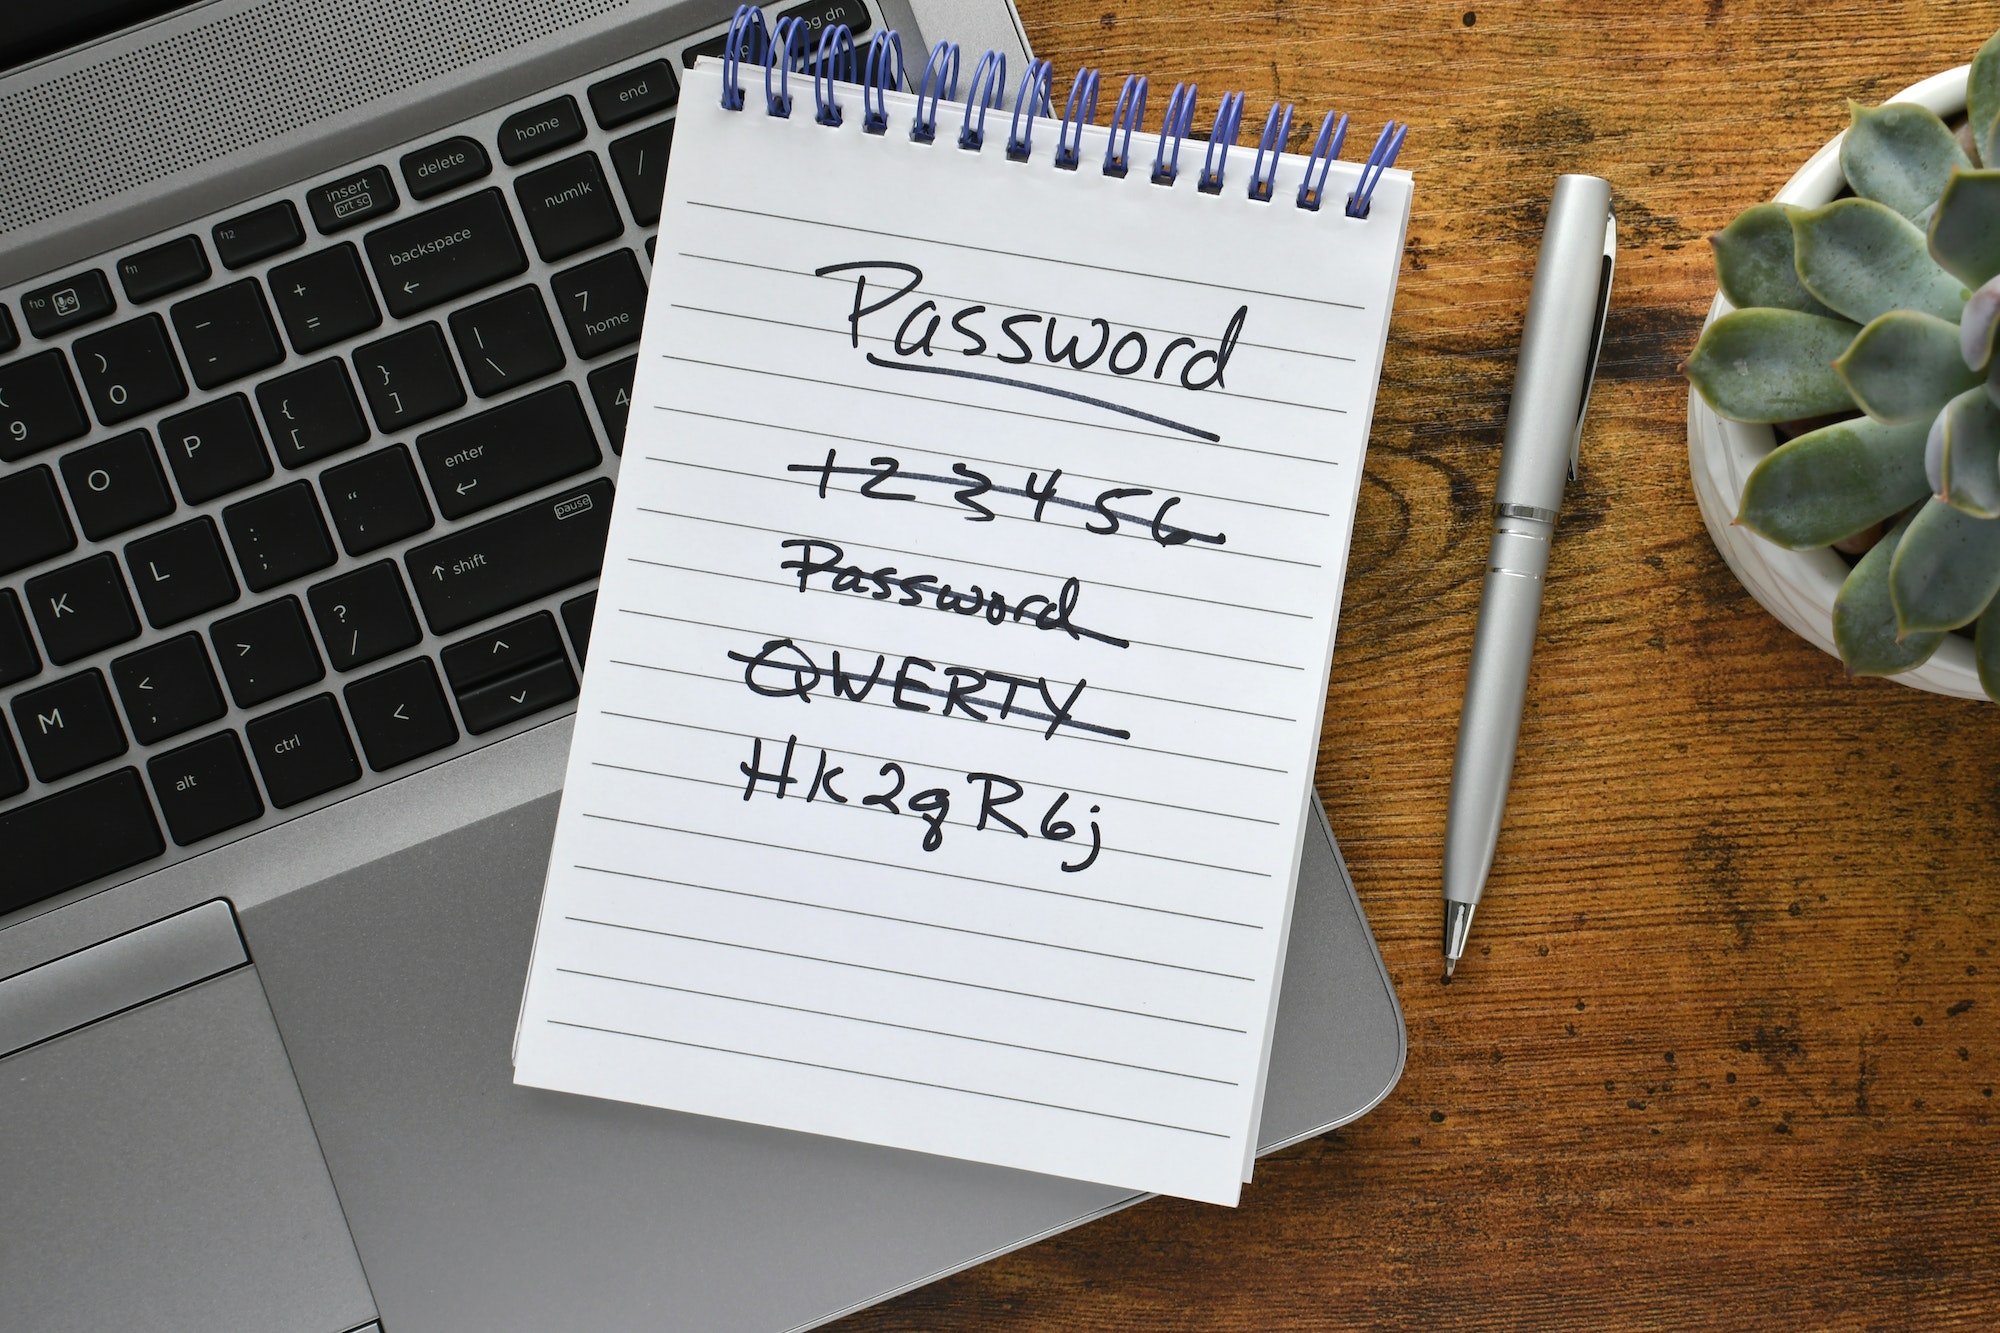 Password
123456
Password
QWERTY
Hk2gR6j
og dn
end
home
delete
insert
prt sc
f12
f11
f10
numlk
/
backspace
←
+
=
—
-
)
0
(
9
7
home
|
\
}
]
{
[
P
O
4
enter
↵
"
'
:
;
L
K
pause
↑ shift
?
/
>
.
<
,
M
^
v
<
ctrl
alt